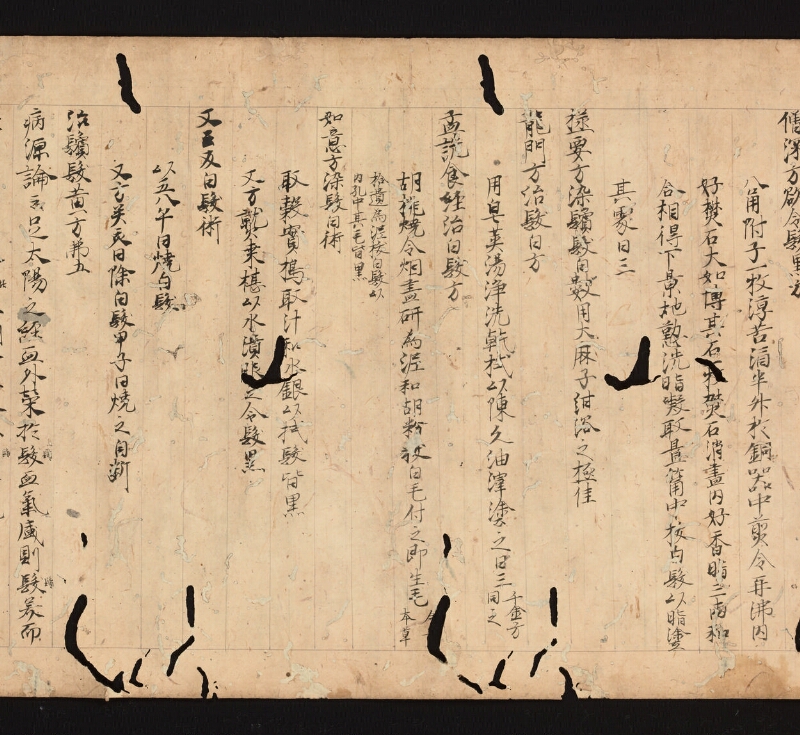 僧深方欲令髮黑方
八角附子一枚淳苦酒半升於銅器中煎令再沸內
好礬石大如博其石一枚礬石消盡內好香脂三兩和
合相得下置地熟洗脂髮取置筩中拔白髮以脂塗
其處日三
葰要方染鬚髮白數用大麻子紺浴之極佳
龍門方治髮白方
用皂莢湯淨洗乾拭以陳久油滓塗之日三 千金方同之
孟詵食經治白髮方
胡桃燒令烟盡研為泥和胡粉拔白毛付之即生毛 本草
拾遺為泥拔白髮以
內孔中其毛皆黑
如意方染髮白術
取穀實搗取汁和水銀以拭髮皆黑
又方熟桑椹以水漬服之令髮黑
又云反白髮術
以五八午日燒白髮
又方癸亥日除白髮甲子日燒之自斷
治鬚髮黃方第五
病源論云足太陽之經血外榮於髮血氣盛則髮美而